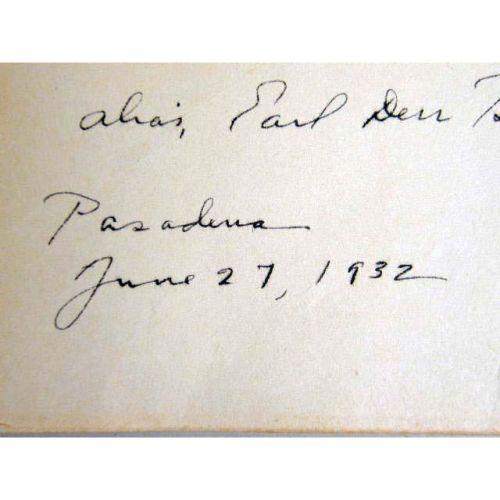 alias, Earl Derr B
Pasadena
June 27, 1932